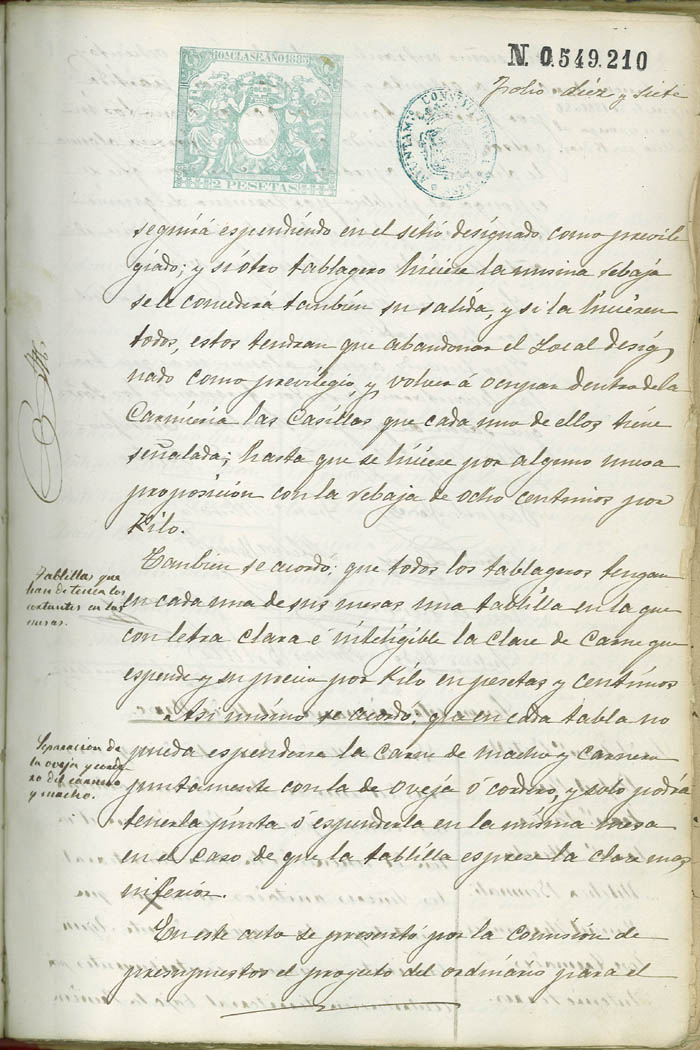 10ª CLASE AÑO 1885
2 PESETAS
N. 0.549.210
Folio diez y siete
AYUNTAM.
CONSTITU
seguirá espendiendo en el sitio designado como previle
giado; y si otro tablagero hiciese la misma rebaja
se le concederá tambien su salida, y si la hiciesen
todos, estos tendran que abandonar el Local desig
nado como previlegio, y volver á ocupar dentro de la
Carniceria las Casillas que cada uno de ellos tiene
señalada; hasta que se hiciese por alguno nueva
proposición con la rebaja de ocho centimos por
Kilo.
Tablillas que
han de tener los
cortantes en las
mesas.
Tambien se acordó: que todos los tablageros tengan
en cada una de sus mesas una tablilla en la que
con letra clara é inteligible la clase de Carne que
espende y su precio por Kilo en pesetas y centimos
Asi mismo se acordó, que en cada tabla no
Separacion de
la oveja y corde
ro del carnero
y macho.
pueda espenderse la Carne de macho y Carnero
juntamente con la de oveja ó cordero, y solo podrá
tenerla junta ó espenderla en la misma mesa
en el caso de que la tablilla esprese la clase mas
inferior.
En este acto se presentó por la comisión de
presupuestos el proyecto del ordinario para el